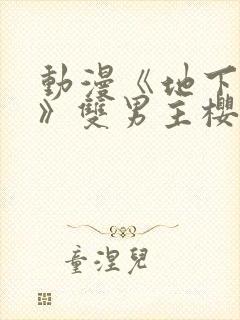 動漫《地下
》雙男主櫻
童涅兒